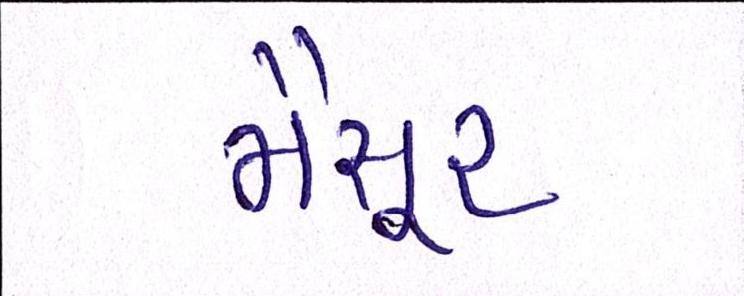 મૈસૂર